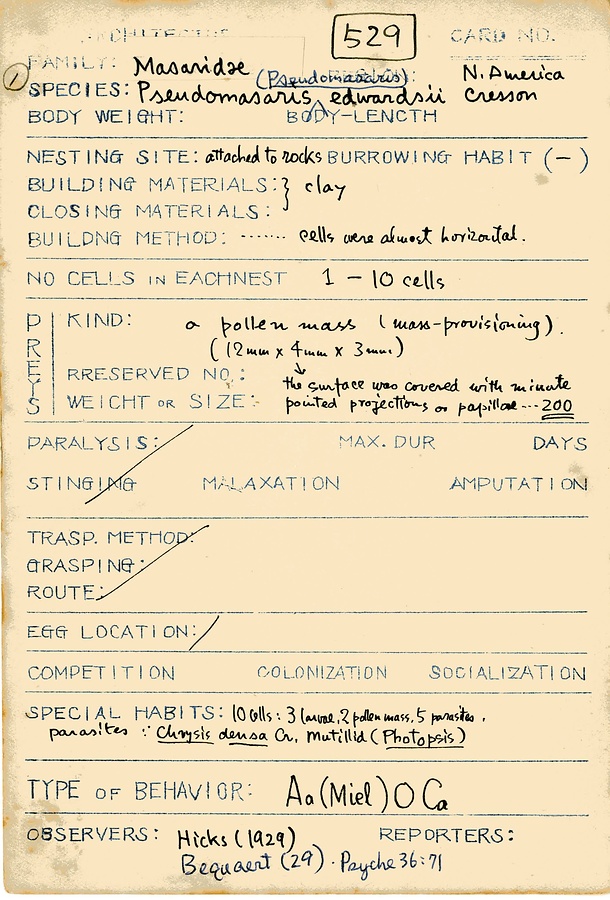 529 CARD NO.
① FAMILY: Masaridae (Pseudomasaris) N. America
SPECIES: Pseudomasaris edwardsii Cresson
BODY WEIGHT: BODY-LENGTH
NESTING SITE: attached to rocks BURROWING HABIT (-)
BUILDING MATERIALS: } clay
CLOSING MATERIALS:
BUILDNG METHOD: ....... cells were almost horizontal.
NO CELLS IN EACHNEST 1 - 10 cells
PREYS KIND: a pollen mass (mass-provisioning).
(12mm x 4mm x 3mm)
RRESERVED NO.: the surface was covered with minute
WEIGHT OR SIZE: pointed projections or papillae --- 200
PARALYSIS: MAX. DUR DAYS
STINGING MALAXATION AMPUTATION
TRASP. METHOD:
GRASPING:
ROUTE:
EGG LOCATION:
COMPETITION COLONIZATION SOCIALIZATION
SPECIAL HABITS: 10 Cells: 3 larvae, 2 pollen mass, 5 parasites.
parasites : Chrysis densa Cr, Mutillid (Photopsis)
TYPE OF BEHAVIOR: Aa (Miel) O Ca
OBSERVERS: Hicks (1929) REPORTERS:
Bequaert (29) · Psyche 36:71